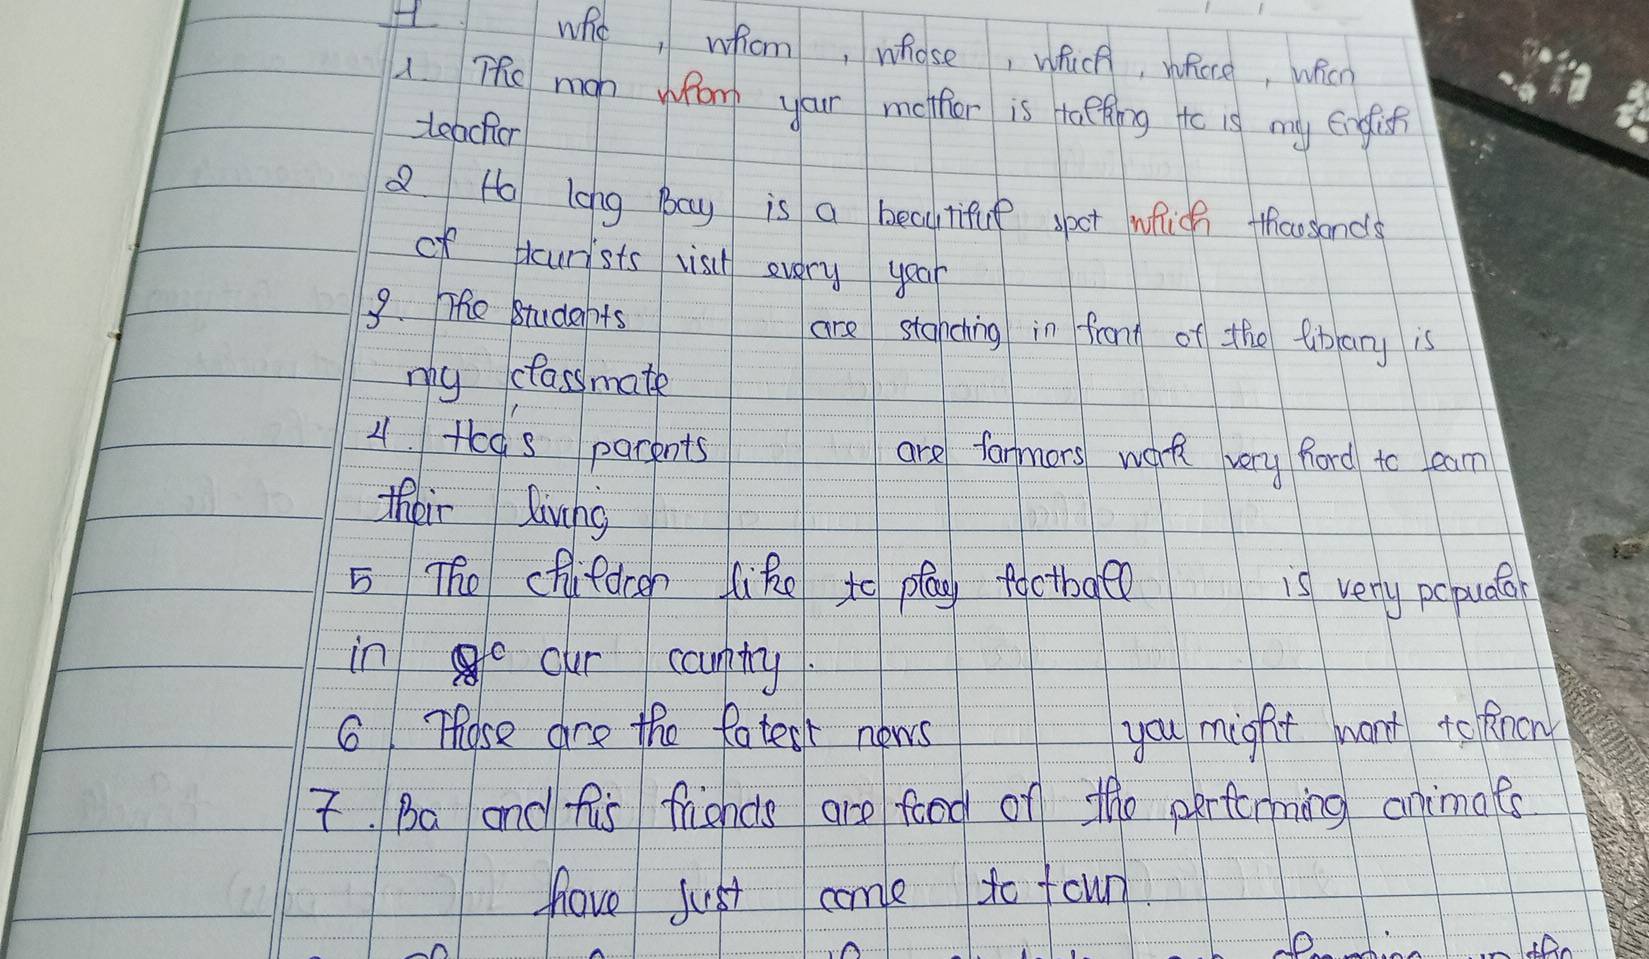 H who, whom, whose, which, where, when
1. The man whom your mother is talking to is my English
teacher
2 Ha long Bay is a beautiful spot which thousands
of tourists visit every year
3. The students are standing in front of the library is
my classmate
4. Hoa's parents are farmers work very hard to learn
their living
5 The children like to play football is very popualar
in our country.
6. Those are the latest news you might want to know
7. Ba and his friends are food of the performing animals
have just come to town.